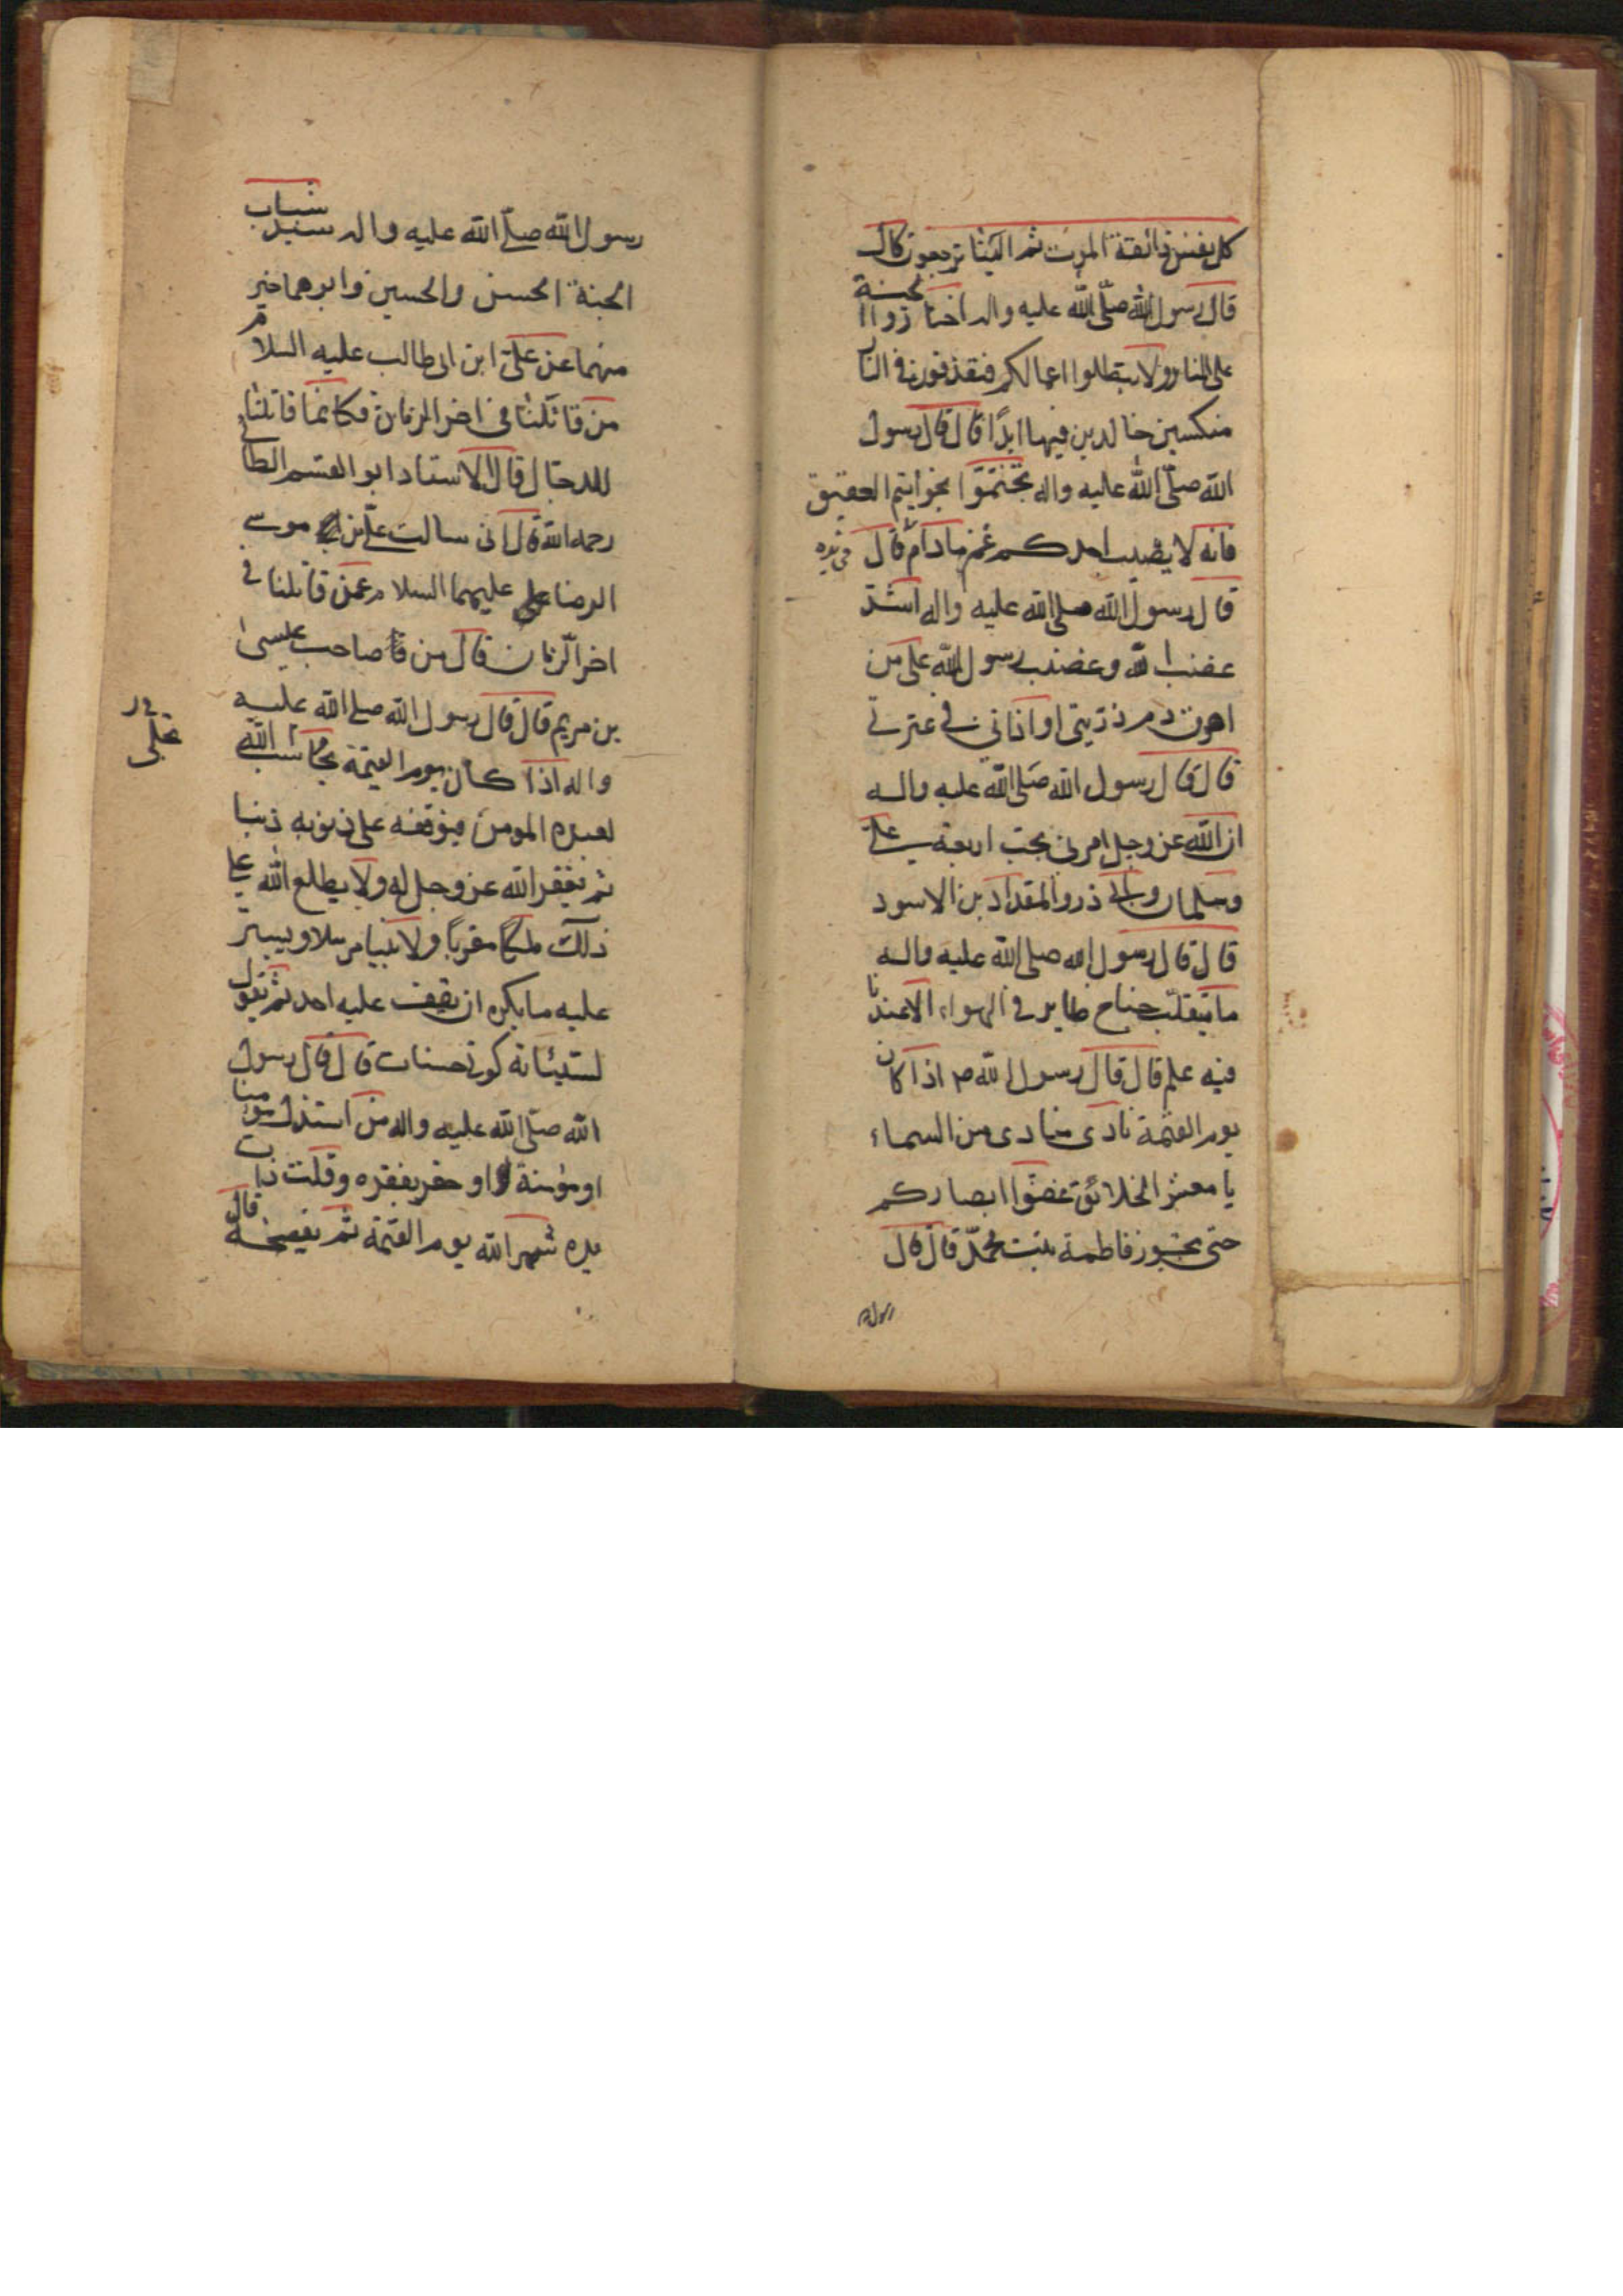 كل نفس ذائقة الموت ثم الينا ترجعون قال
قال رسول الله صلّى الله عليه واله اختاروا الجنة
على النار ولا تبطلوا اعمالكم فتقذفون في النار
منكسين خالدين فيها ابدًا قال قال رسول
الله صلّى الله عليه واله تختموا بخواتيم العقيق
فانه لا يصيب احدكم غم مادام قال
قال رسول الله صلى الله عليه واله اشتد
غضب الله وغضب رسول الله على من
اهرق دم ذريتي او اذاني في عترتي
قال قال رسول الله صلى الله عليه واله
ان الله عز وجل امرني بحب اربعة علي
وسلمان وابي ذر والمقداد بن الاسود
قال قال رسول الله صلى الله عليه واله
ما يتقلب جناح طاير في الهواء الا عندنا
فيه علم قال قال رسول الله ص اذا كان
يوم القيمة نادى منادى من السماء
يا معشر الخلائق غضوا ابصاركم
حتى تجوز فاطمة بنت محمّد قال قال
رسول الله
رسول الله صلّى الله عليه واله سيد شباب
الجنة الحسن والحسين وابوهما خير
منهما عن علىّ ابن ابى طالب عليه السلام
من قاتلنا في اخر الزمان فكانما قاتلنا
للدجال قال الاستاد ابو القسم الطائي
رحمه الله قال انى سالت علي بن موسى
الرضا عليهما السلام عمن قاتلنا في
اخر الزمان قال من قا صاحب عيسى
بن مريم قال قال رسول الله صلى الله عليه
واله اذا كان يوم القيمة يحاسب الله
لعبده المومن فيوقفه على ذنوبه ذنبا
ثم يغفر الله عز وجل له ولا يطلع الله على
ذلك ملكًا مقربًا ولا نبيا مرسلا ويستر
عليه ما يكره ان يقف عليه احد ثم يقول
لسيئاته كونى حسنات قال قال رسول
الله صلى الله عليه واله من استذل مومنا
او مؤمنة او حقر بفقره وقلت ذات
يده شهر الله يوم القيمة ثم يفضحه قال